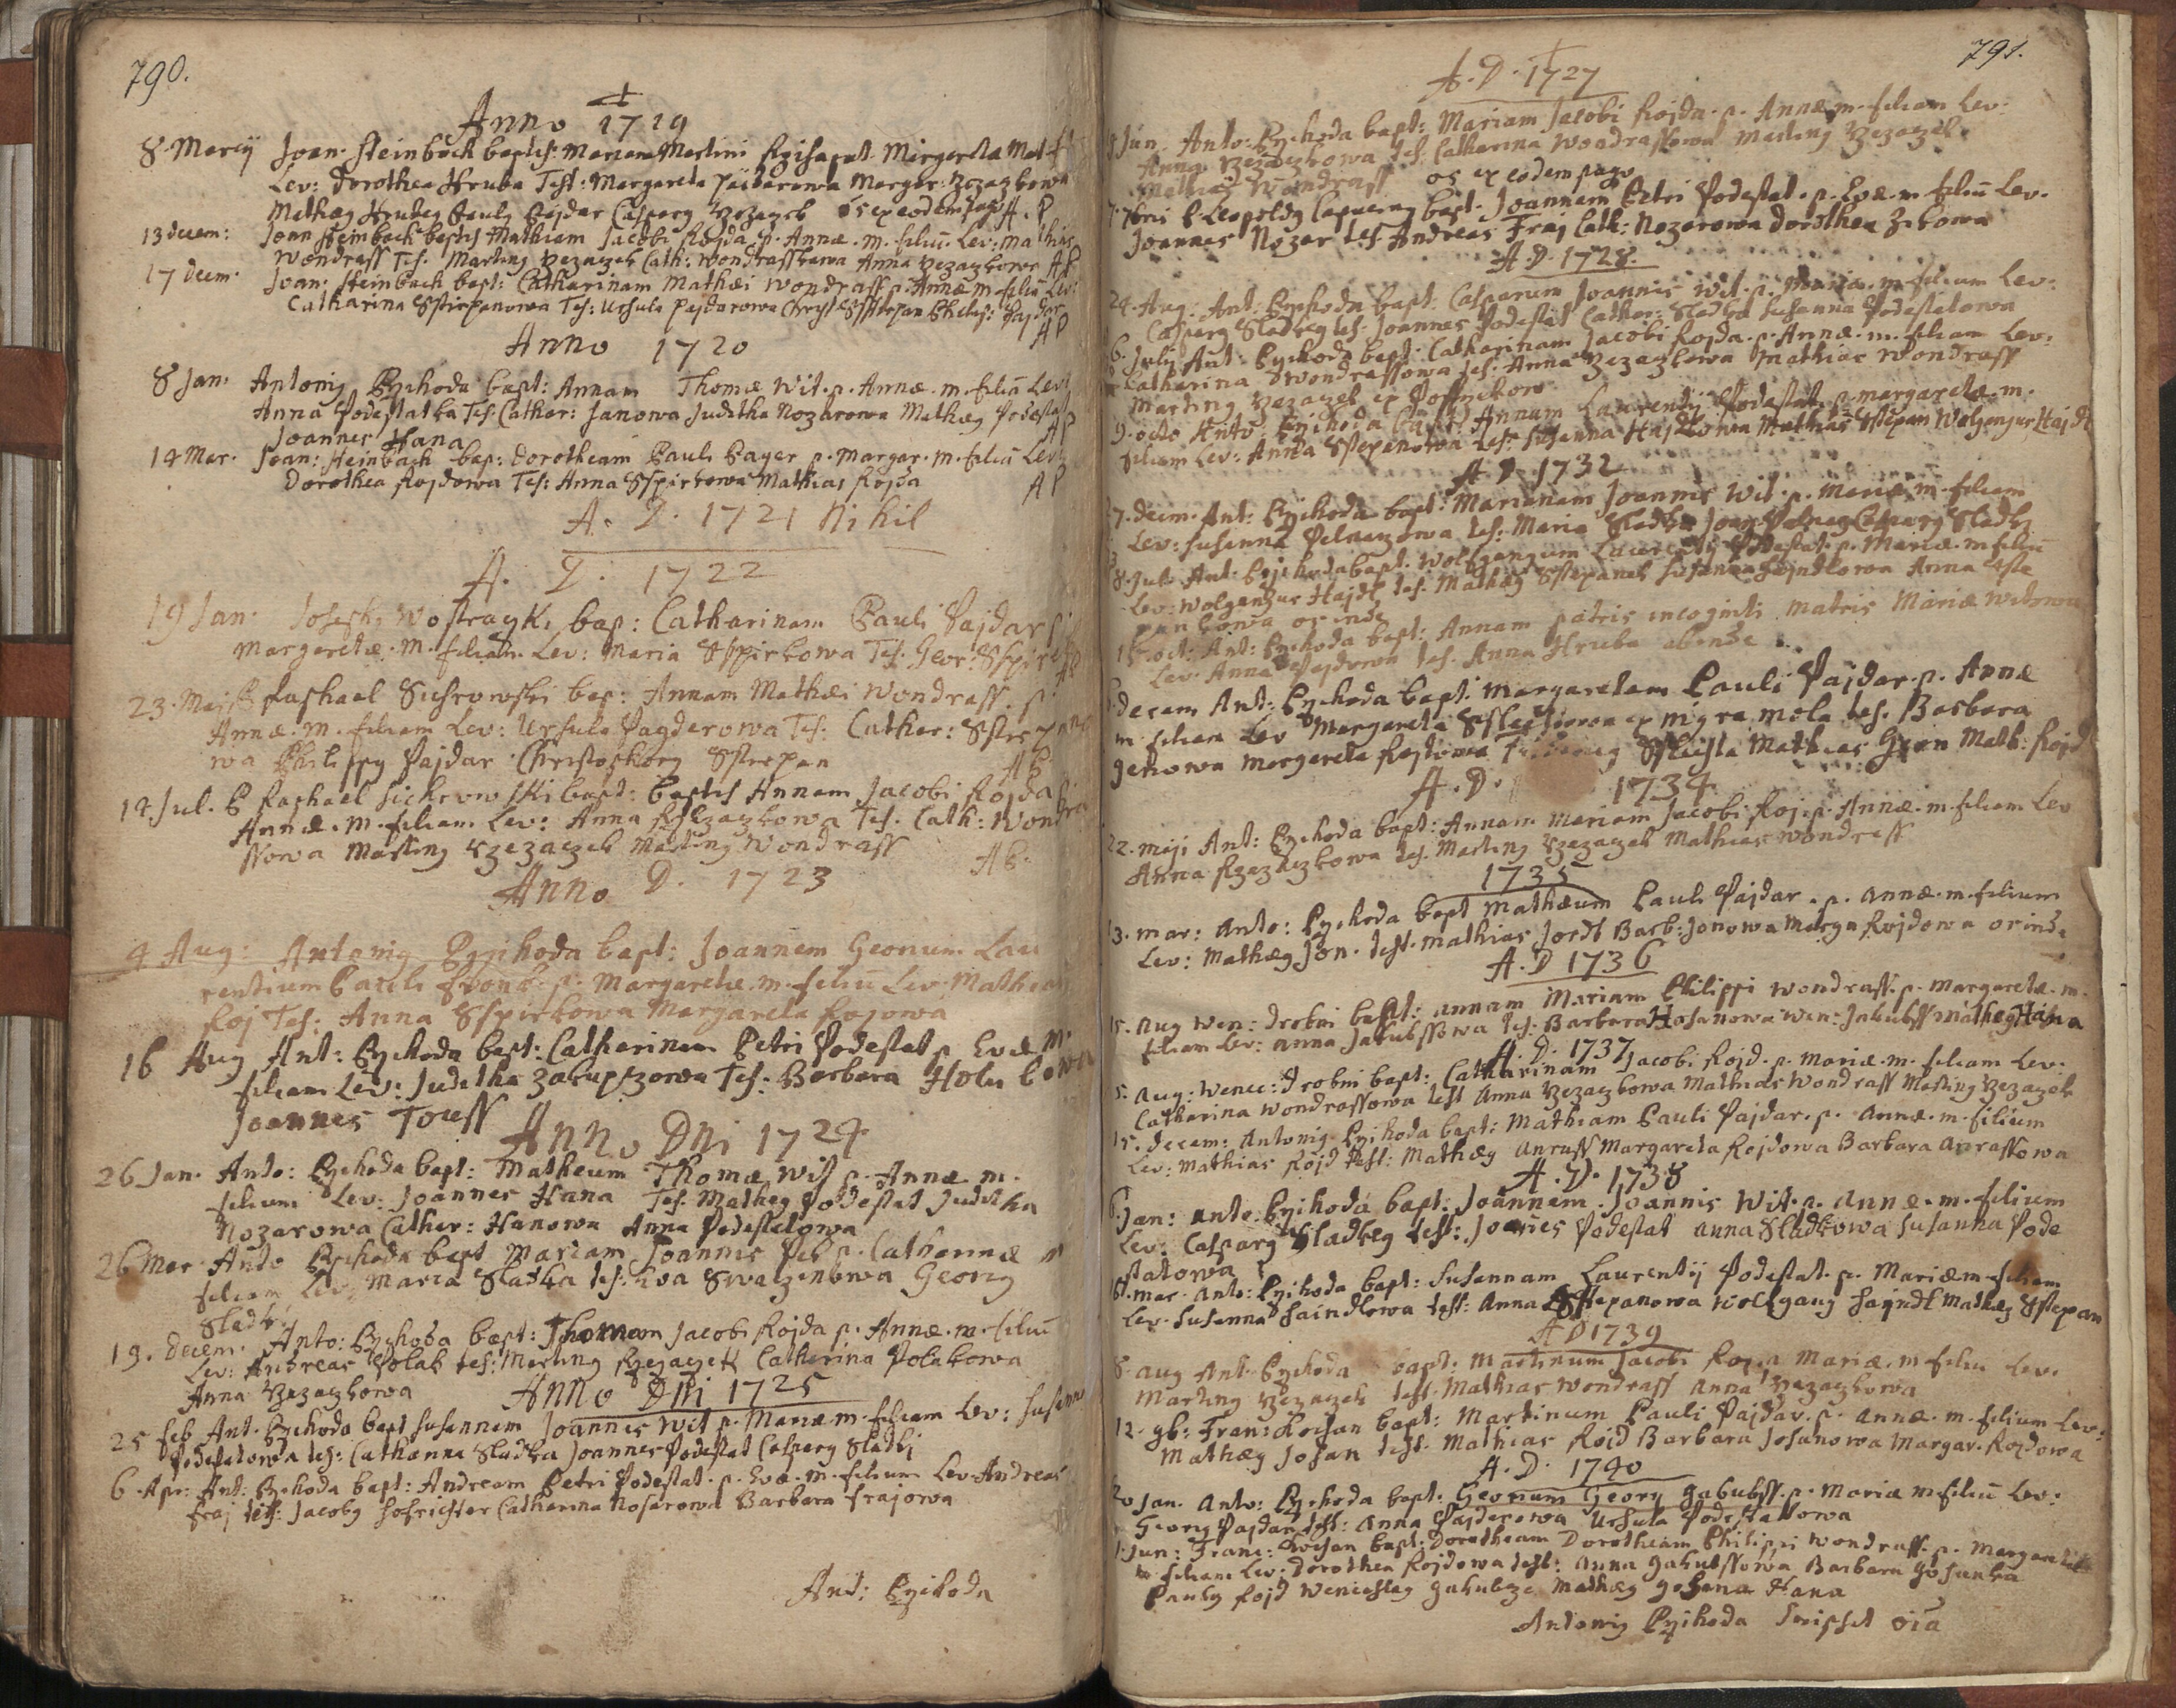 790.
Anno 1719
8 Marcij Joan. Steinbach baptis: Mariam Martini Rzisa p.
Lev: Dorothea Hruba Test: Margareta Paidarowa Margar: Rzezaczkowa
Mathæg Hrubeg Paulg Pajdar Casparg Rzezaczek os ex eodem pago A. P
13 decem: Joan Steinbach baptis Mathiam Jacobi Rojda p. Annæ. m. filiu Lev: Mathias
Wondrass Tes. Marting Rzezaczek Cath: Wondrasskowa Anna Rzezaczkowa AP
17 decem. Joan: Steinbach bapt: Catharinam Mathæi Wondrass p. Annæ m. filia Lev:
Catharina Sstiepanowa Tes: Ursula Pajdarowa Christ Sstiepan Philip: Pajdar
AP
Anno 1720
8 Jan: Antonig Przihoda bapt: Annam Thomæ Wit. p. Annæ. m. filia Lev:
Anna Podestatka Tes: Cather: Janowa Juditha Nozarowa Mathæg Podestat
Joannes Hana AP
14 Mar. Joan: Steinbach bap: Dorotheam Pauli Payer p. Margar. m. filia Lev:
Dorothea Rojdowa Tes: Anna Sspirkowa Mathias Rojda AP
A. D. 1721 Nihil
A. D. 1722
19 Jan: Joseph, Wostrayki bap: Catharinam Pauli Pajdar p.
Margaretæ. m. filiam. Lev: Maria Sspirkowa Tes. Geor: Sspirek
AP
23. Maji P Raphael Suchrowski bap: Annam Mathæi Wondrass. p.
Annæ. m. filiam Lev: Ursula Pagderowa Tes: Cather: Sstiepano
wa Philippg Pajdar Christophorg Sstiepan AP.
12. Jul. P Raphael Sickrowski bapt: baptis Annam Jacobi Rojda
Annæ. m. filiam Lev: Anna Rzezaczkowa Tes. Cath: Wondra
ssowa Marting Rzezaczek Marting Wondrass AP.
Anno D. 1723
4 Aug: Antonig Przihoda bapt: Joannem Georium Lau
rentium Pauli p. Margaretæ. m. filiu Lev: Mathias
Roj Tes: Anna Sspirkowa Margareta Rojowa
16 Aug Ant: Przihoda bapt: Catharinam Petri Podestat p. Evæ m.
filiam Lev: Juditha Zakupczowa Tes: Barbara Holubowa
Joannes Touss
Anno Dni 1724
26 Jan. Anto: Przihoda bapt: Matheum Thomæ Wit p. Annæ m.
filium Lev: Joannes Hana Tes. Matheg Podestat Juditha
Nozarowa Cather: Hanowa Anna Podestatowa
26 Mar Anto Przihoda bapt Mariam Joannis Peb p. Catharinæ m
filiam Lev: Maria Sladka tes: Eva Swaczinowa Georg
Sladky
19. decem. Anto: Przihoda bapt: Thomam Jacobi Rojda p. Annæ. m. filiu
Lev: Andreas Polak tes: Marting Rzezaczek Catharina Polakowa
Anna Rzezaczkowa
Anno Dni 1725
25 feb Ant. Przihoda bapt Susannam Joannis Wit p. Mariæ m. filiam Lev: Susanna
Podestatowa tes: Catharina Sladka Joannes Podestat Casparg Sladkj
6. Apr: Ant: Przihoda bapt: Andream Petri Podestat. p. Evæ. m. filium Lev. Andreas
Fraj tets: Jacobg Hofrichter Catharina Nosarowa Barbara Frajowa
Ant: Przihoda
791.
A. D. 1727
Jun. Anto: Przihoda bapt: Mariam Jacobi Rojda. p. Annæ m. filiam Lev:
Anna Rzezaczkowa tes: Catharina Wondrassowa Marting Rzezaczek
Mathias Wondrass os ex eodem pago
7. 7bris P. Leopoldg Capucing bapt. Joannem Petri Podestat. p. Evæ. m. filiu Lev.
Joannes Nozar tes. Andreas Fraj Cath: Nozarowa Dorothea Zibowa
A. D. 1728.
24. Aug: Ant: Przihoda bapt: Casparum Joannis Wit. p. Maria. m. filium Lev:
Casparg Sladkeg tes: Joannes Podestat Cather: Sladka Susanna Podestatowa
6. Julij Ant. Przihoda bapt. Catharinam Jacobi Rojda. p. Annæ. m. filiam Lev:
Catharina Wondrassowa tes: Anna Rzezaczkowa Mathias Wondrass
Marting Rzezaczek ex
9. octo Anto: Przihoda bapt: Annam Laurentij Podestat. p. Margaretæ. m.
filiam Lev: Anna Sstepanowa tes: Susanna Hajdlowa Mathias Sstepan Wolgangus Hajdl
A. D. 1732
7. decem. Ant: Przihoda bapt: Marianam Joannis Wit. p. Mariæ. m. filiam
Lev: Susanna Pelnarzowa tes: Maria Sladka Joan. Pelnarz Casparg Sladky
8. Jul. Ant. Przihoda bapt. Wolfgangum Laurentij Podestat. p. Mariæ. m. filiu
Lev: Wolgangus Hajdl tes. Matheg Sstepanek Susanna Hajndlowa Anna Sste
pankowa os inde
15. oct: Ant: Przihoda bapt: Annam patris incogniti Matris Mariæ Witowa
Lev: Anna Pajdrowa tes. Anna Hruba abinde
decem Ant: Przihoda bapt: Margaretam Pauli Pajdar. p. Annæ
m filiam Lev Margareta ex nigra mola tes. Barbara
Margareta Rojdowa Mathias Jon Math: Rojd
A. D. 1734
22. Maji Ant: Przihoda bapt: Annam Mariam Jacobi Roj. p. Annæ. m. filiam Lev
Anna Rzezaczkowa tes. Marting Rzezaczek Mathias Wondrass
1735
13. mar: Anto: Przihoda bapt Mathæum Pauli Pajdar. p. Annæ. m. filium
Lev: Mathæg Jon. test. Mathias Jordl Barb: Jonowa Marga Rojdowa os inde
A. D 1736
15. Aug Wen: Drobni bapt: Annam Mariam Philippi Wondrass. p. Margaretæ. m.
filiam Lev: Anna Jakubssowa tes: Barbara Hosanowa Wen: Jakubss Matheg Hana
A. D. 1737
5. Aug: Wence: Drobni bapt: Catharinam Jacobi Rojd. p. Mariæ. m. filiam Lev:
Catharina Wondrassowa test Anna Rzezaczkowa Mathias Wondrass Marting Rzezaczek
15. decem: Antonig Przihoda bapt: Mathiam Pauli Pajdar. p. Annæ. m. filium
Lev: Mathias Rojd test: Mathæg Anrass Margareta Rojdowa Barbara Anrassowa
A. D. 1738
6. Jan: Anto. Przihoda bapt: Joannem. Joannis Wit. p. Annæ. m. filium
Lev: Casparg Sladkeg test: Joanes Podestat Anna Sladkowa Susanna Pode
statowa
8. mar. Anto: Przihoda bapt: Susannam Laurentij Podestat. p. Mariæ m. filiam
Lev. Susanna Haindlowa test: Anna Sstepanowa Wolfgang Hajndl Mathæg Sstepan
A D 1739
8. aug Ant. Przihoda bapt: Martinum Jacobi Roj. p. Mariæ. m. filiu Lev.
Marting Rzezaczek test. Mathias Wondrass Anna Rzezaczkowa
12. 9b: Fran: Kocsan bapt: Martinum Pauli Pajdar. p. Annæ. m. filium Lev:
Mathæg Josan test. Mathias Rojd Barbara Josanowa Margar. Rojdowa
A. D. 1740
20 Jan. Anto: Przihoda bapt: Georium Georg Jakubss. p. Mariæ m. filiu Lev:
Georg Pajdar test: Anna Pajderowa Ursula Podestatowa
1. Jun: Franc: Kocsan bapt: Dorotheam Dorotheam Philippi Wondrass. p. Margaretæ
m filiam Lev: Dorothea Rojdowa test: Anna Jakubssowa Barbara Josanka
Paulg Rojd Wenceslag Jakubcze Mathæg Josana Hana
Antonig Przihoda Scripsit oia